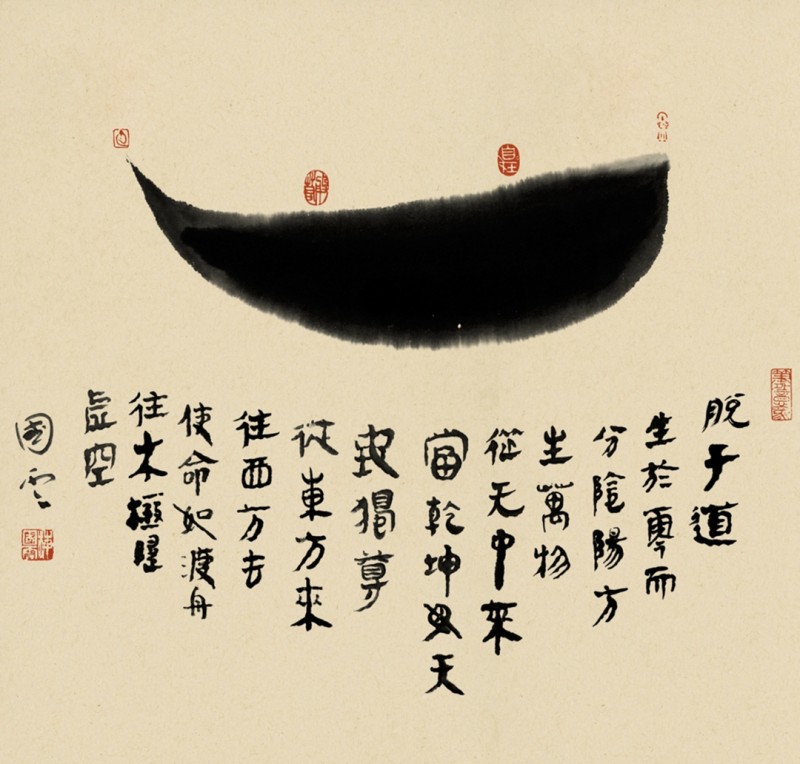 脫于道
生於零而
分陰陽方
生萬物
從无中來
當乾坤天
我獨尊
從東方來
往西方去
使命如渡舟
往木極星
虛空
國雲
自在